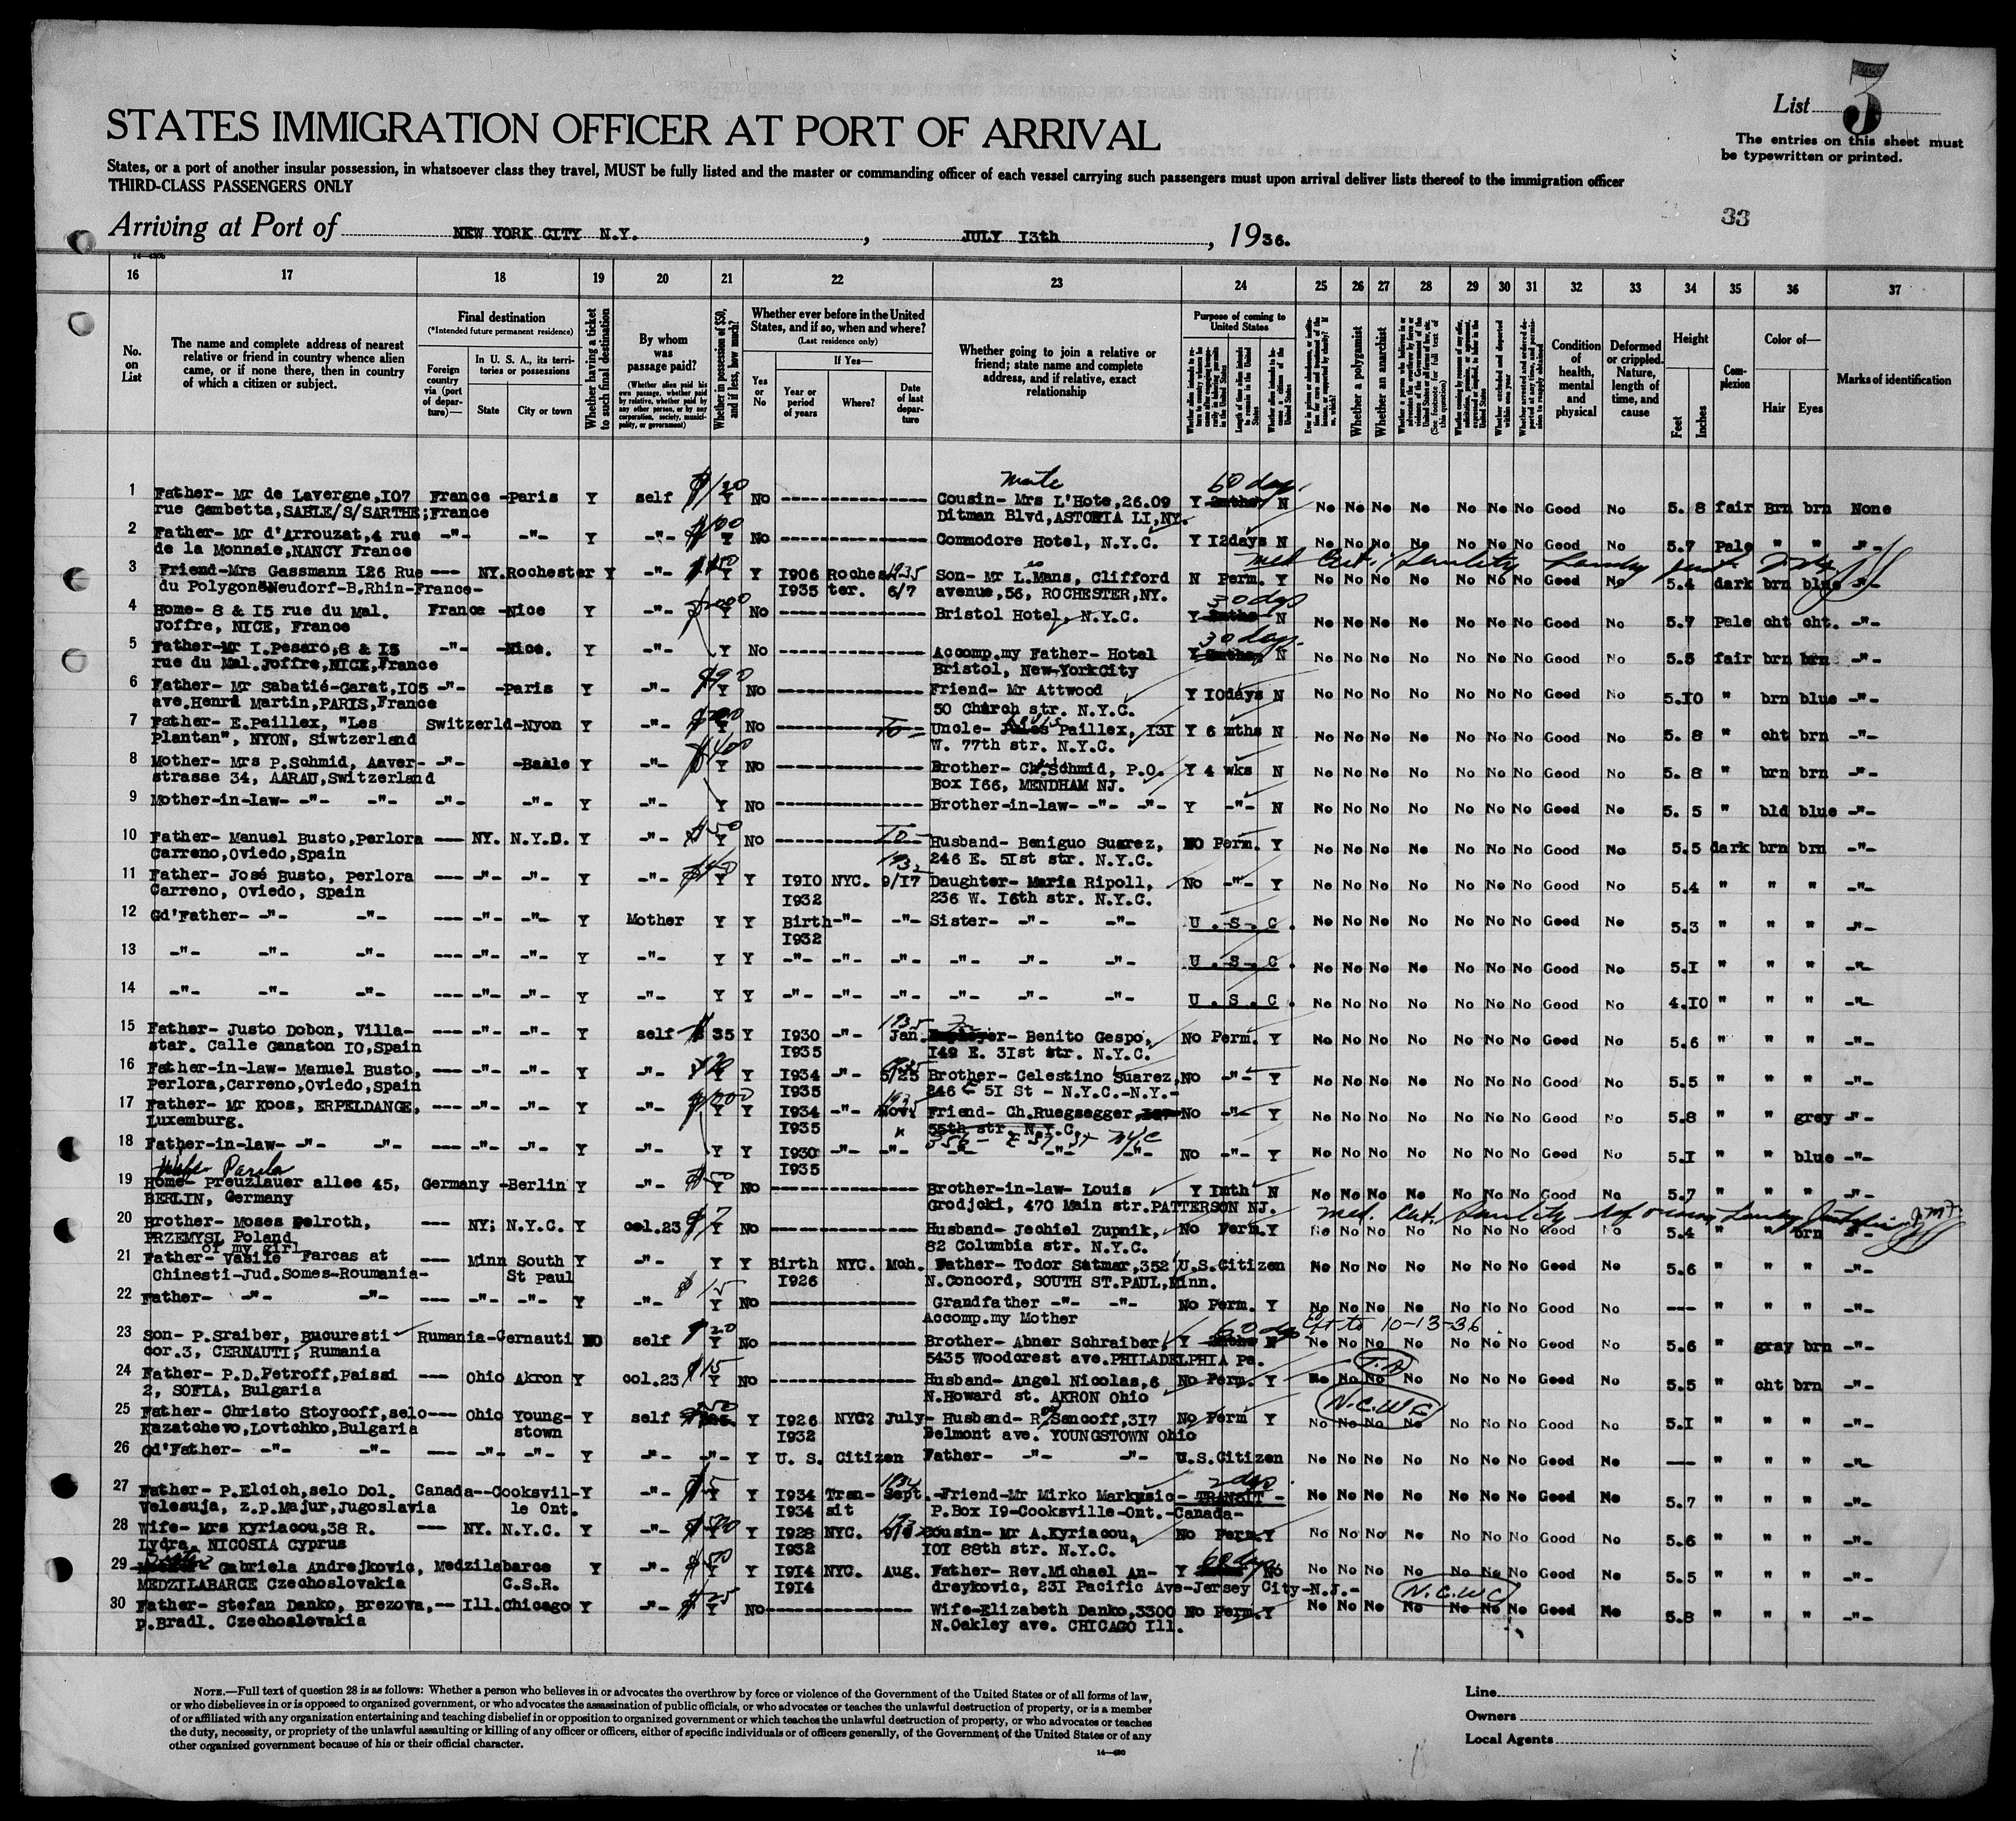 List 5
STATES IMMIGRATION OFFICER AT PORT OF ARRIVAL
The entries on this sheet must
be typewritten or printed.
States, or a port of another insular possession, in whatsoever class they travel, MUST be fully listed and the master or commanding officer of each vessel carrying such passengers must upon arrival deliver lists thereof to the immigration officer
THIRD-CLASS PASSENGERS ONLY
33
Arriving at Port of NEW YORK CITY N.Y. , JULY 13th , 1936.
16 17 18 19 20 21 22 23 24 25 26 27 28 29 30 31 32 33 34 35 36 37
No. on List
The name and complete address of nearest relative or friend in country whence alien came, or if none there, then in country of which a citizen or subject.
Final destination
(*Intended future permanent residence)
Foreign country via (port of departure)—
In U. S. A., its territories or possessions
State
City or town
Whether having a ticket to such final destination
By whom was passage paid?
(Whether alien paid his own passage, whether paid by relative, whether paid by any other person, or by any corporation, society, municipality, or government)
Whether in possession of $50, and if less, how much?
Whether ever before in the United States, and if so, when and where?
(Last residence only)
Yes or No
If Yes—
Year or period of years
Where?
Date of last departure
Whether going to join a relative or friend; state name and complete address, and if relative, exact relationship
Purpose of coming to United States
Length of time alien intends to remain in the United States
Whether a polygamist
Whether an anarchist
Condition of health, mental and physical
Deformed or crippled. Nature, length of time, and cause
Height
Feet
Inches
Complexion
Color of—
Hair
Eyes
Marks of identification
1 Father- Mr de Lavergne,107 France -Paris Y self $120 Y No ---------------- Cousin- Mrs L'Hote,26.09 Y 60 days N No No No No No No No Good No 5. 8 fair Brn brn None
rue Gambetta,SABLE/S/SARTHE;France Ditman Blvd,ASTORIA LI,NY.
2 Father- Mr d'Arrouzat,4 rue -"- -"- Y -"- Y No ---------------- Commodore Hotel, N.Y.C. Y 12days N No No No No No No No Good No 5.7 Pale " " -"-
de la Monnaie,NANCY France
3 Friend-Mrs Gassmann 126 Rue --- NY.Rochester Y -"- Y Y 1906 Roches 1935 Son- Mr L.Mans, Clifford N Perm. Y No No No No No No No Good No 5.4 dark brn blue -"-
du Polygone Neudorf-B.Rhin-France- 1935 ter. 6/7 avenue,56, ROCHESTER,NY.
4 Home- 8 & 15 rue du Mal. France -Nice Y -"- Y No ---------------- Bristol Hotel, N.Y.C. Y 30 days N No No No No No No No Good No 5.7 Pale cht cht. -"-
Joffre, NICE, France
5 Father-Mr I.Pesaro,8 & 15 -"- -Nice. Y -"- Y No ---------------- Accomp.my Father- Hotel Y 30 days N No No No No No No No Good No 5.5 fair brn brn -"-
rue du Mal.Joffre,NICE,France Bristol, New-YorkCity
6 Father- Mr Sabatié-Garat,105 -"- -Paris Y -"- $90 Y No ---------------- Friend- Mr Attwood Y 10days N No No No No No No No Good No 5.10 " brn blue -"-
ave.Henri Martin,PARIS,France 50 Church str. N.Y.C.
7 Father- E.Paillex, "Les Switzerld-Nyon Y -"- Y No ---------------- Uncle- Paillex, 131 Y 6 mths N No No No No No No No Good No 5. 8 " cht brn -"-
Plantan", NYON, Siwtzerland W. 77th str. N.Y.C.
8 Mother- Mrs P.Schmid, Aaver- -"- -Basle Y -"- $400 Y No ---------------- Brother- Ch.Schmid, P.O. Y 4 wks N No No No No No No No Good No 5. 8 " brn brn -"-
strasse 34, AARAU,Switzerland Box 166, MENDHAM NJ.
9 Mother-in-law- -"- -"- -"- -"- Y -"- Y No ---------------- Brother-in-law- -"- -"- Y -"- N No No No No No No No Good No 5. 5 " bld blue -"-
10 Father- Manuel Busto,Perlora --- NY. N.Y.C. Y -"- $50 Y No ---------------- Husband- Beniguo Suarez, NO Perm. Y No No No No No No No Good No 5.5 dark brn brn -"-
Carreno,Oviedo,Spain 246 E. 51st str. N.Y.C.
11 Father- José Busto, Perlora --- -"- -"- Y -"- Y Y 1910 NYC. 9/17 Daughter- Maria Ripoll, No -"- Y No No No No No No No Good No 5.4 " " " -"-
Carreno, Oviedo, Spain 1932 236 W. 16th str. N.Y.C.
12 Gd'Father- -"- -"- --- -"- -"- Y Mother Y Y Birth -"- -"- Sister- -"- -"- U.S.C. No No No No No No No Good No 5.3 " " " -"-
1932
13 -"- -"- -"- --- -"- -"- Y -"- Y Y -"- -"- -"- -"- -"- -"- U.S.C. No No No No No No No Good No 5.1 " " " -"-
14 -"- -"- -"- --- -"- -"- Y -"- Y Y -"- -"- -"- -"- -"- -"- U.S.C. No No No No No No No Good No 4.10 " " " -"-
15 Father- Justo Dobon, Villa- --- -"- -"- Y self $ 35 Y 1930 -"- 1935 Jan. Benito Gespo, No Perm. Y No No No No No No No Good No 5.6 " " " -"-
star. Calle Ganaton 10,Spain 1935 149 E. 31st str. N.Y.C.
16 Father-in-law- Manuel Busto, --- -"- -"- Y -"- Y Y 1934 -"- 5/25 Brother- Celestino Suarez, No -"- Y No No No No No No No Good No 5.5 " " " -"-
Perlora,Carreno,Oviedo,Spain 1935 246 E 51 St - N.Y.C.-N.Y.-
17 Father- Mr Koos, ERPELDANGE, --- -"- -"- Y -"- $1000 Y Y 1934 -"- 1935 Nov. Friend- Ch.Ruegsegger No -"- Y No No No No No No No Good No 5.8 " " grey -"-
Luxemburg. 1935 55th str. N.Y.C.
18 Father-in-law- -"- -"- --- -"- -"- Y -"- Y Y 1930 -"- -"- -"- -"- -"- No -"- Y No No No No No No No Good No 5.1 " " blue -"-
1935
19 Home- Preuzlauer allee 45, Germany -Berlin Y -"- Y No ---------------- Brother-in-law- Louis Y 1mth N No No No No No No No Good No 5.7 " " " -"-
BERLIN, Germany Grodjcki, 470 Main str.PATTERSON NJ.
20 Brother- Moses Delroth, --- NY; N.Y.C. Y col.23 $7 Y No ---------------- Husband- Jechiel Zupnik, No Perm.Y No No No No No No No Good No 5.4 " " brn -"-
PRZEMYSL Poland 82 Columbia str. N.Y.C.
of my girl
21 Father- Vasile Farcas at --- Minn South Y -"- Y Y Birth NYC. Mch. Father- Todor Satmar,352 U.S.Citizen No No No No No No No Good No 5.6 " " " -"-
Chinesti-Jud.Somes-Roumania- St Paul 1926 N.Concord, SOUTH ST.PAUL,Minn.
22 Father- -"- -"- --- -"- -"- Y -"- $15 Y No ---------------- Grandfather -"- -"- No Perm. Y No No No No No No No Good No --- " " " -"-
Accomp.my Mother
23 Son- P.Sraiber, Bucuresti Rumania-Cernauti NO self $20 Y No ---------------- Brother- Abner Schraiber, Y 60 days N No No No No No No No Good No 5.6 " gray brn -"-
cor.3, CERNAUTI, Rumania 5435 Woodcrest ave.PHILADELPHIA Pa. Ext to 10-13-36
24 Father- P.D.Petroff,Paissi --- Ohio Akron Y col.23 $15 Y No ---------------- Husband- Angel Nicolas,6 No Perm. Y No No No No No No No Good No 5.5 " cht brn -"-
2, SOFIA, Bulgaria N.Howard st. AKRON Ohio
N.C.W.C
25 Father- Christo Stoycoff,selo --- Ohio Young- Y self Y 1926 NYC? July- Husband- R Sancoff,317 No Perm Y No No No No No No No Good No 5.1 " " " -"-
Kazatchevo,Lovtchko,Bulgaria stown 1932 Belmont ave. YOUNGSTOWN Ohio
26 Gd'Father- -"- -"- --- -"- -"- Y -"- -"- Y U. S. Citizen Father- -"- -"- U.S.Citizen No No No No No No No Good No --- " " " -"-
27 Father- P.Elcich,selo Dol. Canada--Cooksvil-Y -"- $5 Y Y 1934 Tran- 1934 Sept. -Friend-Mr Mirko Markusic - 2 days TRANSIT - No No No No No No No Good No 5.7 " " " -"-
Velesuja, z.p.Majur,Jugoslavia le Ont. 1934 sit P.Box 19-Cooksville-Ont.-Canada-
28 Wife- Mrs Kyriacou,38 R. --- NY. N.Y.C. Y -"- Y Y 1928 NYC. Cousin- Mr A.Kyriacou, No Perm.Y No No No No No No No Good No 5.6 " " " -"-
Lydra, NICOSIA Cyprus 1932 101 88th str. N.Y.C.
29 Gabriela Andrejkovic, Medzilabarce Y -"- $50 Y Y 1914 NYC. Aug. Father- Rev.Michael An- Y 60 days No No No No No No No No Good No 5.5 " " " -"-
MEDZILABARCE Czechoslovakia C.S.R. 1914 dreykovic, 231 Pacific Ave-Jersey City-N.J.-
N.C.W.C
30 Father- Stefan Danko, Brezova,-- Ill.Chicago Y -"- $25 Y No ---------------- Wife-Elizabeth Danko,3300 No Perm.Y No No No No No No No Good No 5.8 " " " -"-
p.Bradl. Czechoslovakia N.Oakley ave. CHICAGO Ill.
NOTE.—Full text of question 28 is as follows: Whether a person who believes in or advocates the overthrow by force or violence of the Government of the United States or of all forms of law,
or who disbelieves in or is opposed to organized government, or who advocates the assassination of public officials, or who advocates or teaches the unlawful destruction of property, or is a member
of or affiliated with any organization entertaining and teaching disbelief in or opposition to organized government or which teaches the unlawful destruction of property, or who advocates or teaches
the duty, necessity, or propriety of the unlawful assaulting or killing of any officer or officers, either of specific individuals or of officers generally, of the Government of the United States or of any
other organized government because of his or their official character.
14—430
Line
Owners
Local Agents